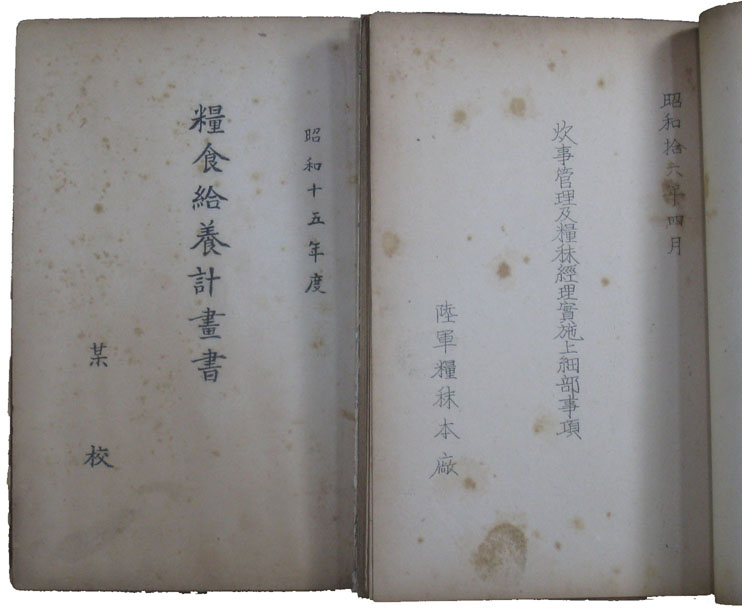 昭和十五年度
糧食給養計畫書
某校
昭和拾六年四月
炊事管理及糧秣經理實施上細部事項
陸軍糧秣本廠